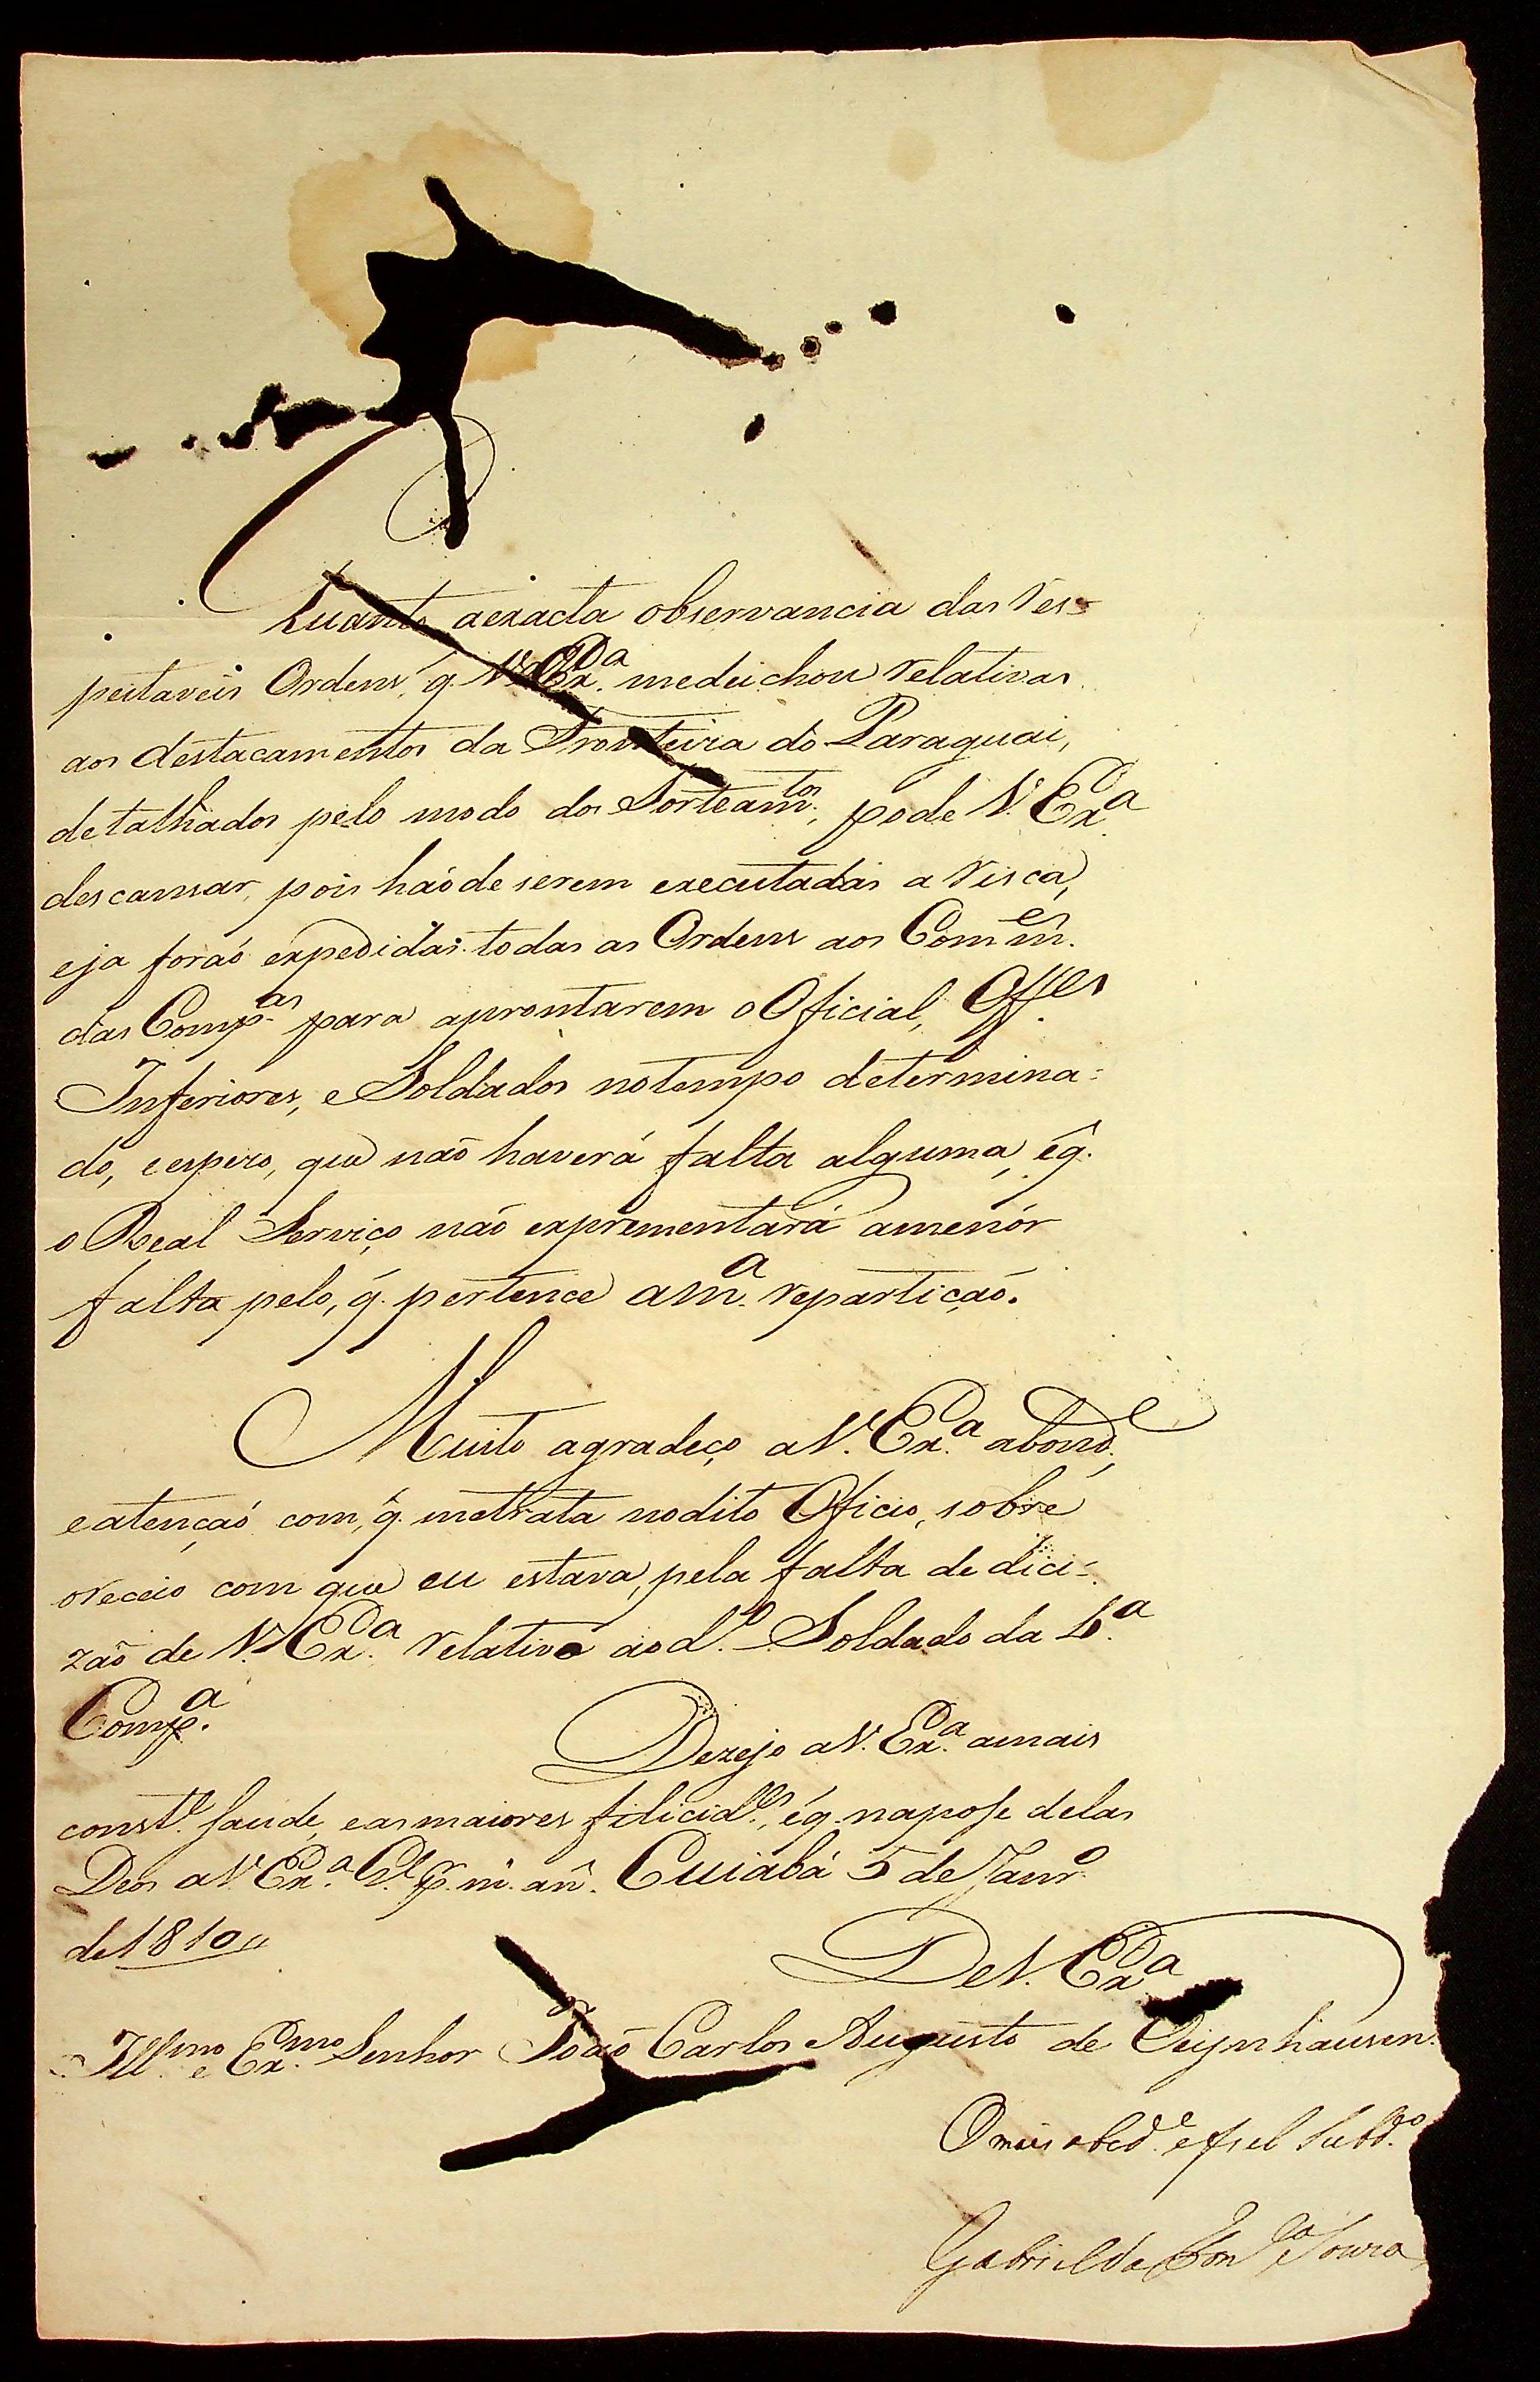 Quanto aexacta observancia das res=
peitaveis Ordens, q̃. V. Exa. medeichou relativas
aos destacamentos da Fronteira do Paraguai,
detalhados pelo modo dos Sorteamtos., pode V. Exa.
descansar, pois haõde serem executadas a risca,
eja foraõ expedidas todas as Ordens aos Comes.
das Compas. para aprontarem o Oficial, Offes.
Inferiores, e Soldados notempo determina=
do, eespero, que naõ haverá falta alguma, éq̃.
o Real Serviço naõ exprementará amenór
falta pelo, q̃. pertence ama. repartiçaõ.
Muito agradeço aV. Exa. abonde.,
eatençaõ com, q̃. metrata nodito Oficio, sobre
oreceio com que eu estava, pela falta de dici=
zaõ de V. Exa. relativo aod.o Soldado da 6.a
Compa.
Dezejo aV. Exa. amais
conste. saude, easmaiores filicides., éq. napose delas
Deos aV. Exa. Ge. p. m. an. Cuiabá 5 de Janro.
de 1810,,
DeV. Exa.
Illmo. e Exmo. Senhor Joaõ Carlos Augusto de Oeijnhausen.
Omais obede. efiel Subdo.
Gabriel da Fonca. e Souza